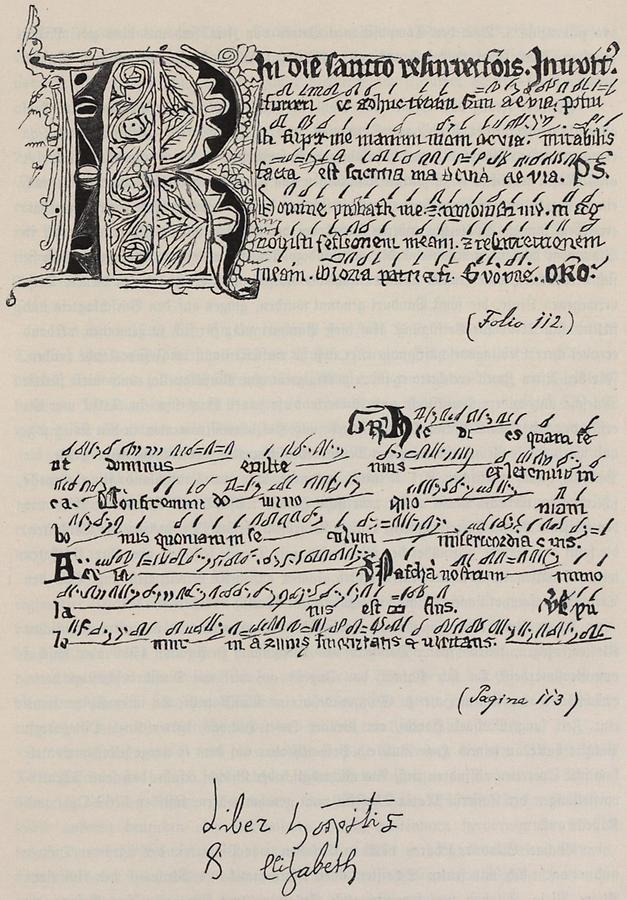 In die sancto resurrectōis. Introit9.
Resurrexi et adhuc tecum sum aevia. posui
sti super me manum tuam aevia. mirabilis
facta est scientia tua aevia. PS.
Domine probasti me et cognovisti me. tu cog
novisti sessionem meam. et resurrectionem
meam. Gloria patri Evovae. ORO.
(Folio 112.)
GR Hec di es quam fe
cit dominus exulte mus et letemur in
ea. Confitemini do mino quo niam
bo nus quoniam in se culum misericordia eius.
A e v a Pascha nostrum immo
la tus est xp̄s. V Epu
le mur in azimis sinceritatis et veritatis.
(Pagina 113)
Liber hospitii
S Elizabeth